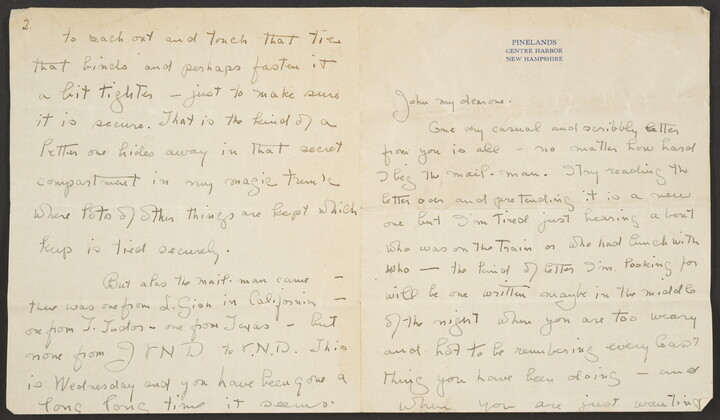 PINELANDS
CENTRE HARBOR
NEW HAMPSHIRE
John my dear one.
One very casual and scribbly letter
from you is all – no matter how hard
I beg the mail-man. I try reading the
letter over and pretending it is a new
one but I'm tired just hearing about
who was on the train or who had lunch with
who – the kind of letter I'm looking for
will be one written maybe in the middle
of the night when you are too weary
and hot to be remembering every last
thing you have been doing – and
when you are just wanting
2.
to reach out and touch that tie
that binds and perhaps fasten it
a bit tighter – just to make sure
it is secure. That is the kind of a
letter one hides away in that secret
compartment in my magic trunk
where lots of other things are kept which
is tied securely.
But alas the mail-man came –
there was one from L. Gish in California –
one from T. Tudor – one from Texas – but
none from to V.N.D. This
is Wednesday and you have been gone a
long long time it seems.